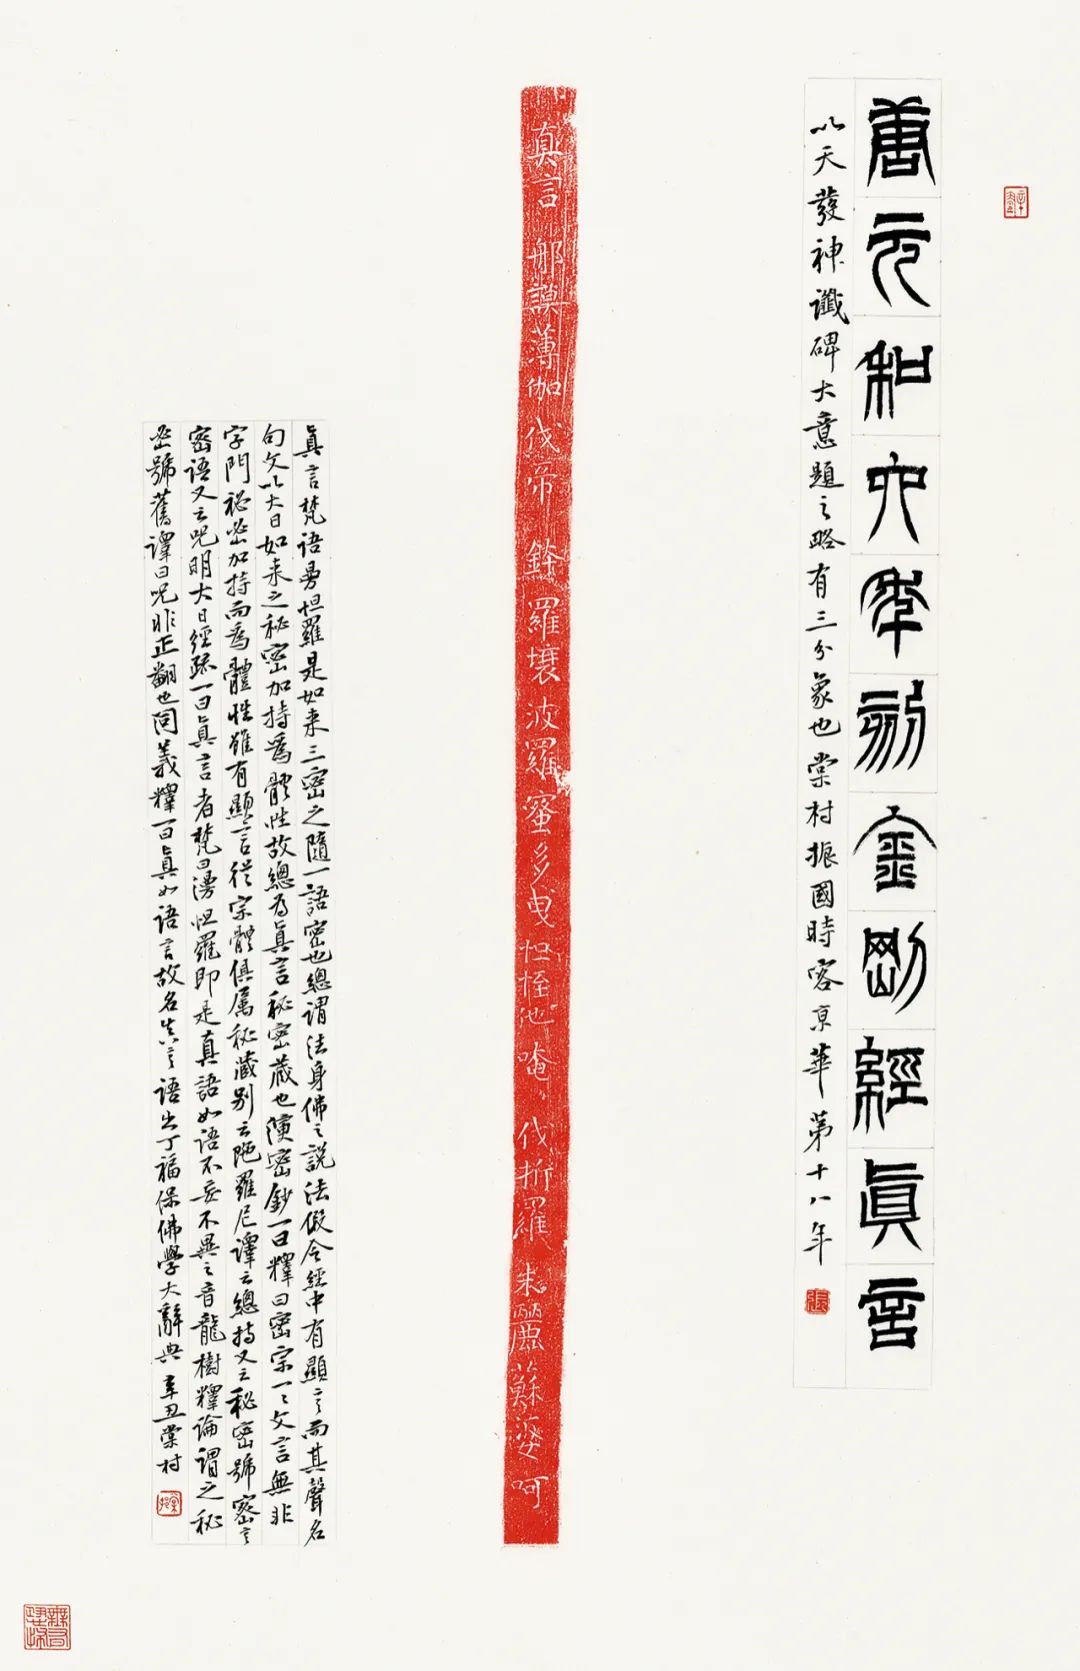 唐元和六年刻金剛經眞言
以天發神讖碑大意題之略有三分象也棠村振國時客京華第十八年
真言 那謨薄伽伐帝 鉢羅壤波羅蜜多曳 怛姪他 唵 伐折羅 麗 蘇婆呵
眞言梵語曼怛羅是如来三密之隨一語密也總謂法身佛之說法假令經中有顯言而其聲名
句文以大日如来之秘密加持爲體性故總爲眞言秘密藏也演密鈔一曰釋曰密宗一々文言無非
字門秘密加持而爲體性雖有顯言從宗體俱属秘藏別云陁羅尼譯云總持又云秘密號密言
密語又云呪明大日經疏一曰眞言者梵曰漫怛羅即是真語如語不妄不異之音龍樹釋論謂之秘
密號舊譯曰呪非正翻也同義釋一曰眞如語言故名真言語出丁福保佛學大辭典 辛丑棠村
張